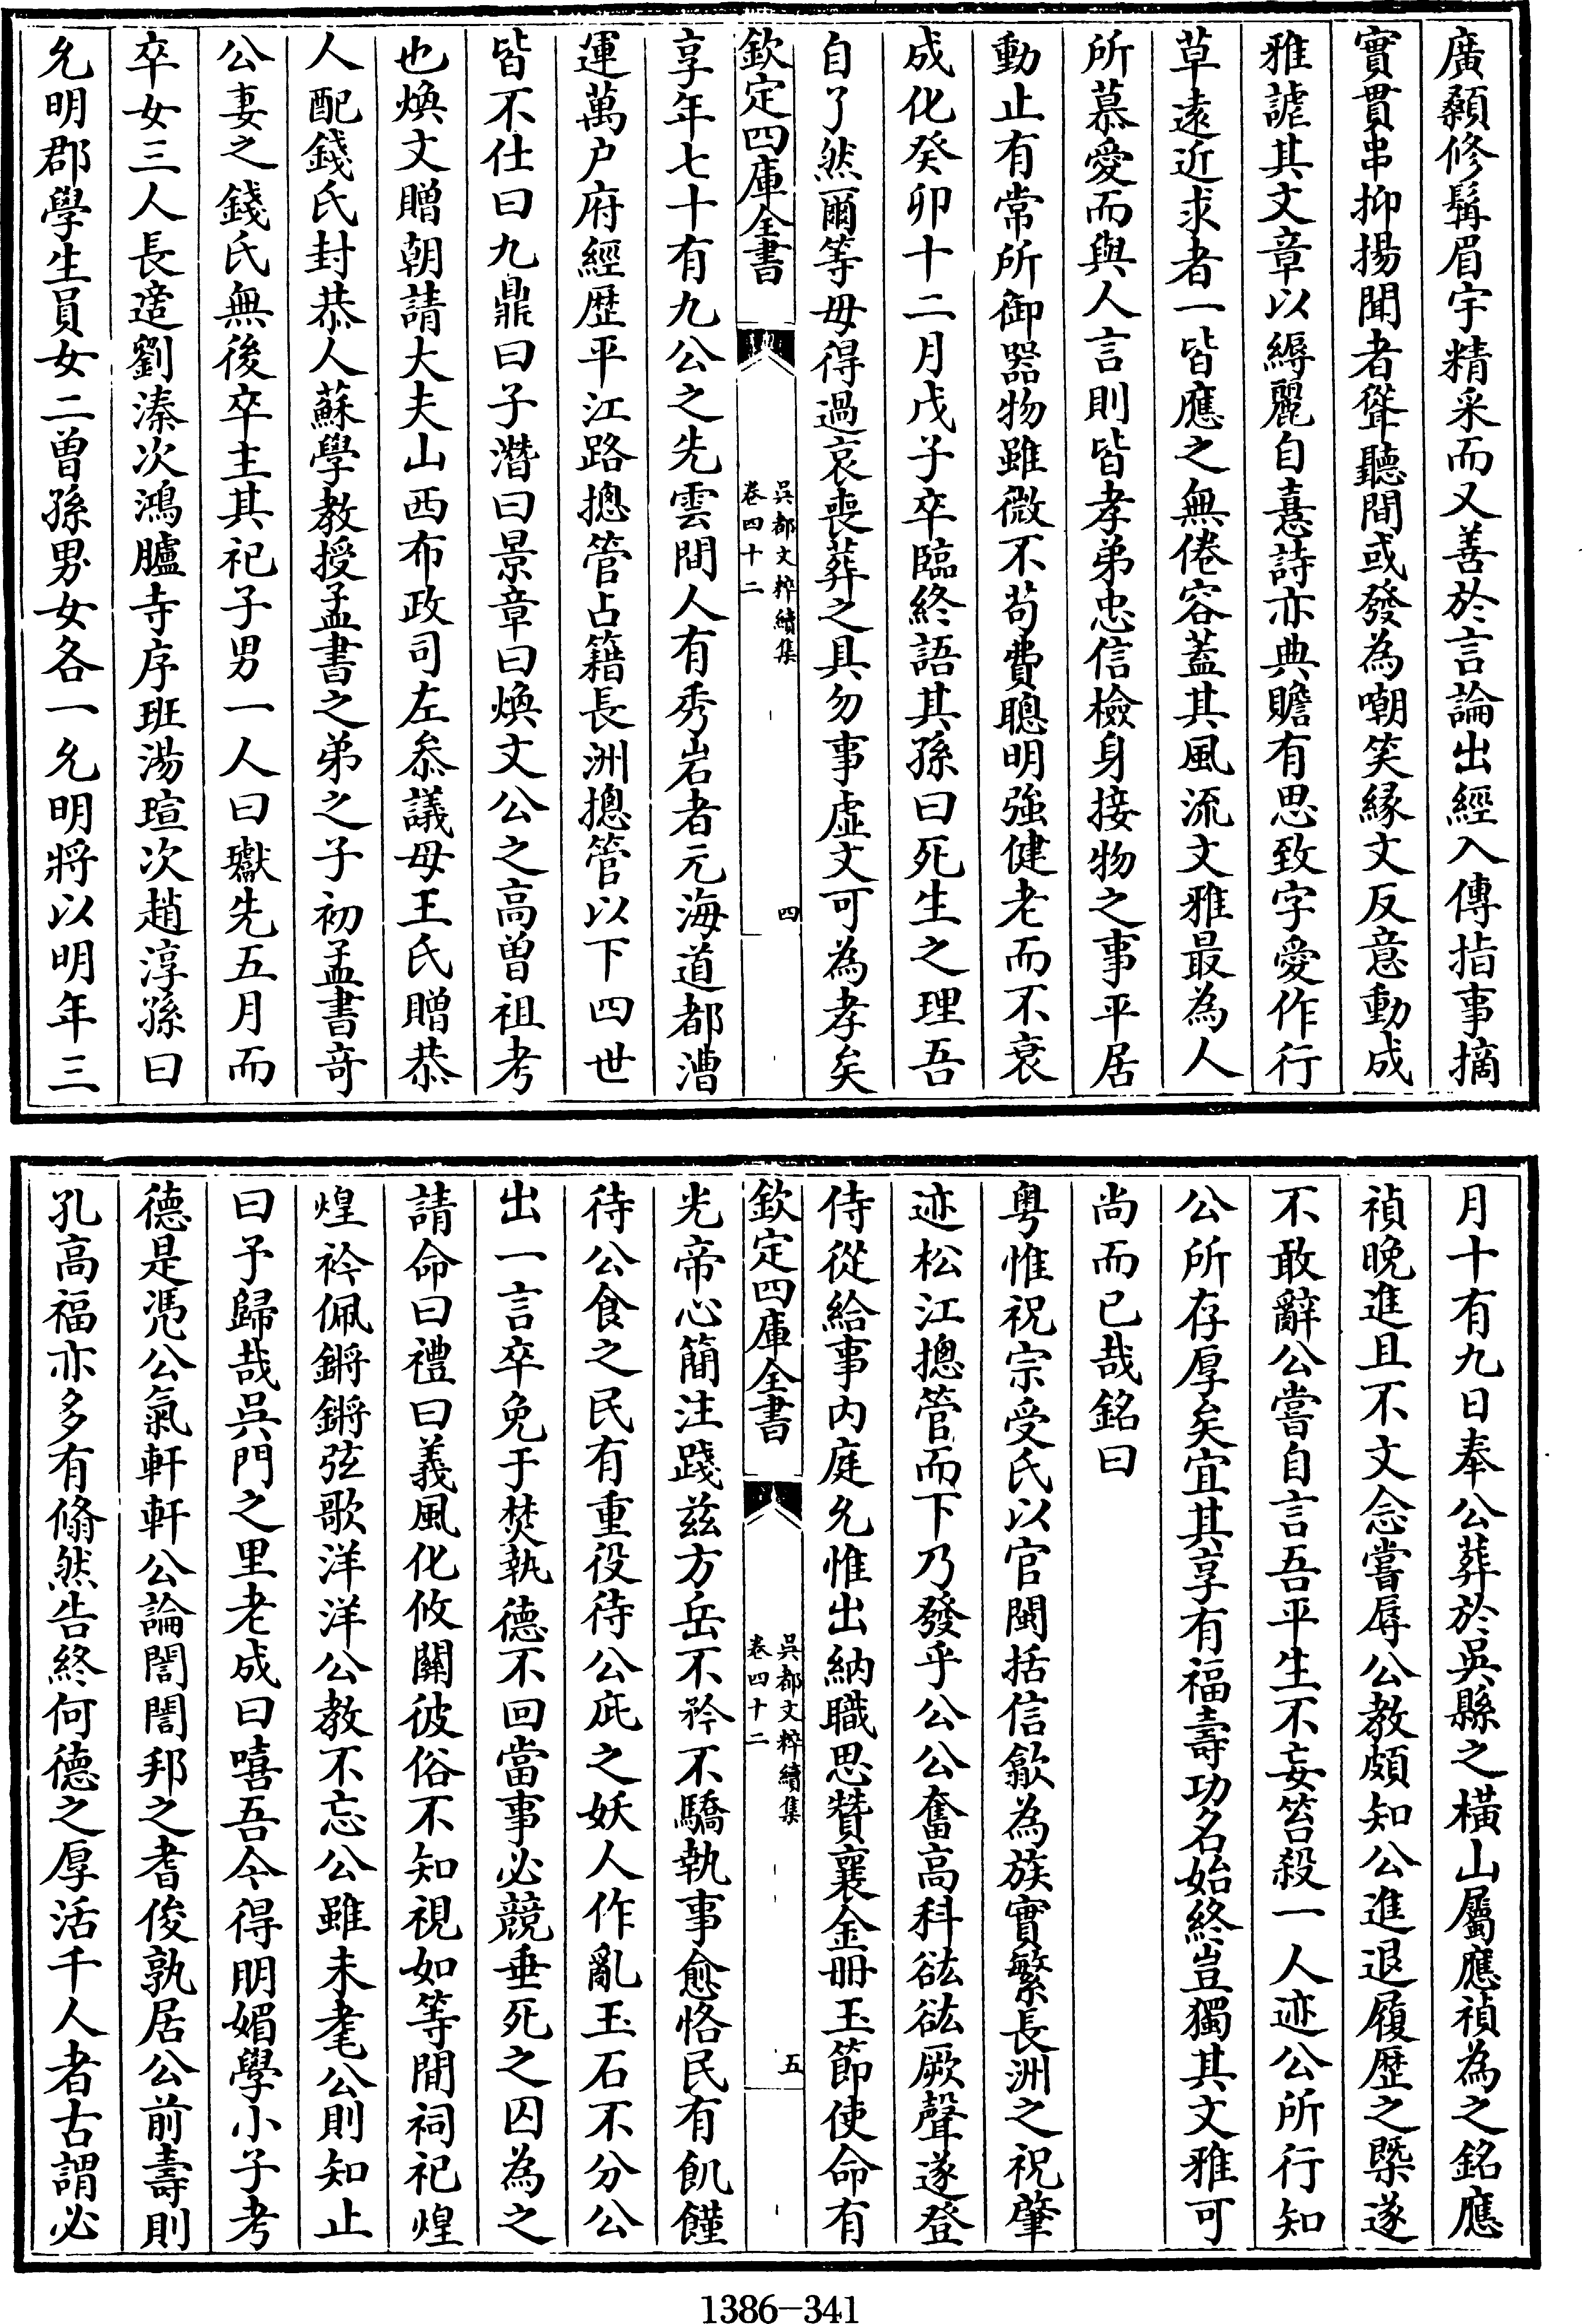 廣顙修髯眉宇精采而又善於言論出經入傳指事摘
實貫串抑揚聞者聳聽間或發為嘲笑緣文反意動成
雅謔其文章以縟麗自憙詩亦典贍有思致字愛作行
草遠近求者一皆應之無倦容蓋其風流文雅最為人
所慕愛而與人言則皆孝弟忠信檢身接物之事平居
動止有常所御器物雖微不苟費聰明強健老而不衰
成化癸卯十二月戊子卒臨終語其孫曰死生之理吾
自了然爾等毋得過哀喪葬之具勿事虛文可為孝矣
欽定四庫全書
吳都文粹續集
卷四十二
四
享年七十有九公之先雲間人有秀岩者元海道都漕
運萬户府經歷平江路摠管占籍長洲摠管以下四世
皆不仕曰九鼎曰子潛曰景章曰煥文公之高曾祖考
也煥文贈朝請大夫山西布政司左叅議母王氏贈恭
人配錢氏封恭人蘇學教授孟書之弟之子初孟書奇
公妻之錢氏無後卒主其祀子男一人曰瓛先五月而
卒女三人長適劉溱次鴻臚寺序班湯瑄次趙淳孫曰
允明郡學生員女二曾孫男女各一允明將以明年三
月十有九日奉公葬於吳縣之橫山屬應禎為之銘應
禎晚進且不文念嘗辱公教頗知公進退履歷之槩遂
不敢辭公嘗自言吾平生不妄笞殺一人迹公所行知
公所存厚矣宜其享有福壽功名始終豈獨其文雅可
尚而已哉銘曰
粵惟祝宗受氏以官閩括信歙為族實繁長洲之祝肇
迹松江摠管而下乃發乎公公奮高科紘紘厥聲遂登
侍從給事内庭允惟出納職思贊襄金冊玉節使命有
欽定四庫全書
吳都文粹續集
卷四十二
五
光帝心簡注踐兹方岳不矜不驕執事愈恪民有飢饉
待公食之民有重役待公庇之妖人作亂玉石不分公
出一言卒免于焚執德不回當事必競垂死之囚為之
請命曰禮曰義風化攸關彼俗不知視如等閒祠祀煌
煌衿佩鏘鏘弦歌洋洋公教不忘公雖未耄公則知止
曰予歸哉吳門之里老成曰嘻吾今得朋媚學小子考
德是凴公氣軒軒公論誾誾邦之耆俊孰居公前壽則
孔高福亦多有翛然告終何德之厚活千人者古謂必
1386-341